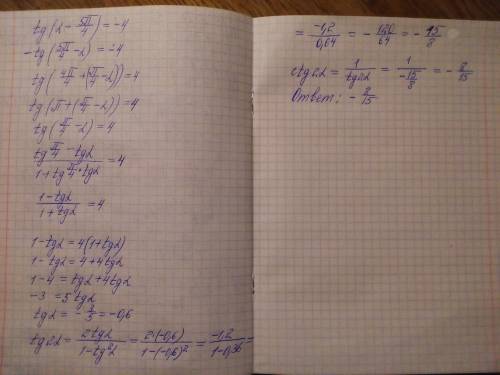 tg(α - 5π/4) = -4
-tg(5π/4 - α) = -4
tg(4π/4 + (π/4 - α)) = 4
tg(π + (π/4 - α)) = 4
tg(π/4 - α) = 4
(tg π/4 - tgα)/(1 + tg π/4 · tgα) = 4
(1 - tgα)/(1 + tgα) = 4
1 - tgα = 4(1 + tgα)
1 - tgα = 4 + 4tgα
1 - 4 = tgα + 4tgα
-3 = 5tgα
tgα = -3/5 = -0,6
tg2α = 2tgα/(1 - tg²α) = 2·(-0,6)/(1 - (-0,6)²) = -1,2/(1 - 0,36) =
= -1,2/0,64 = -120/64 = -15/8
ctg2α = 1/tg2α = 1/(-15/8) = -8/15
Ответ: -8/15